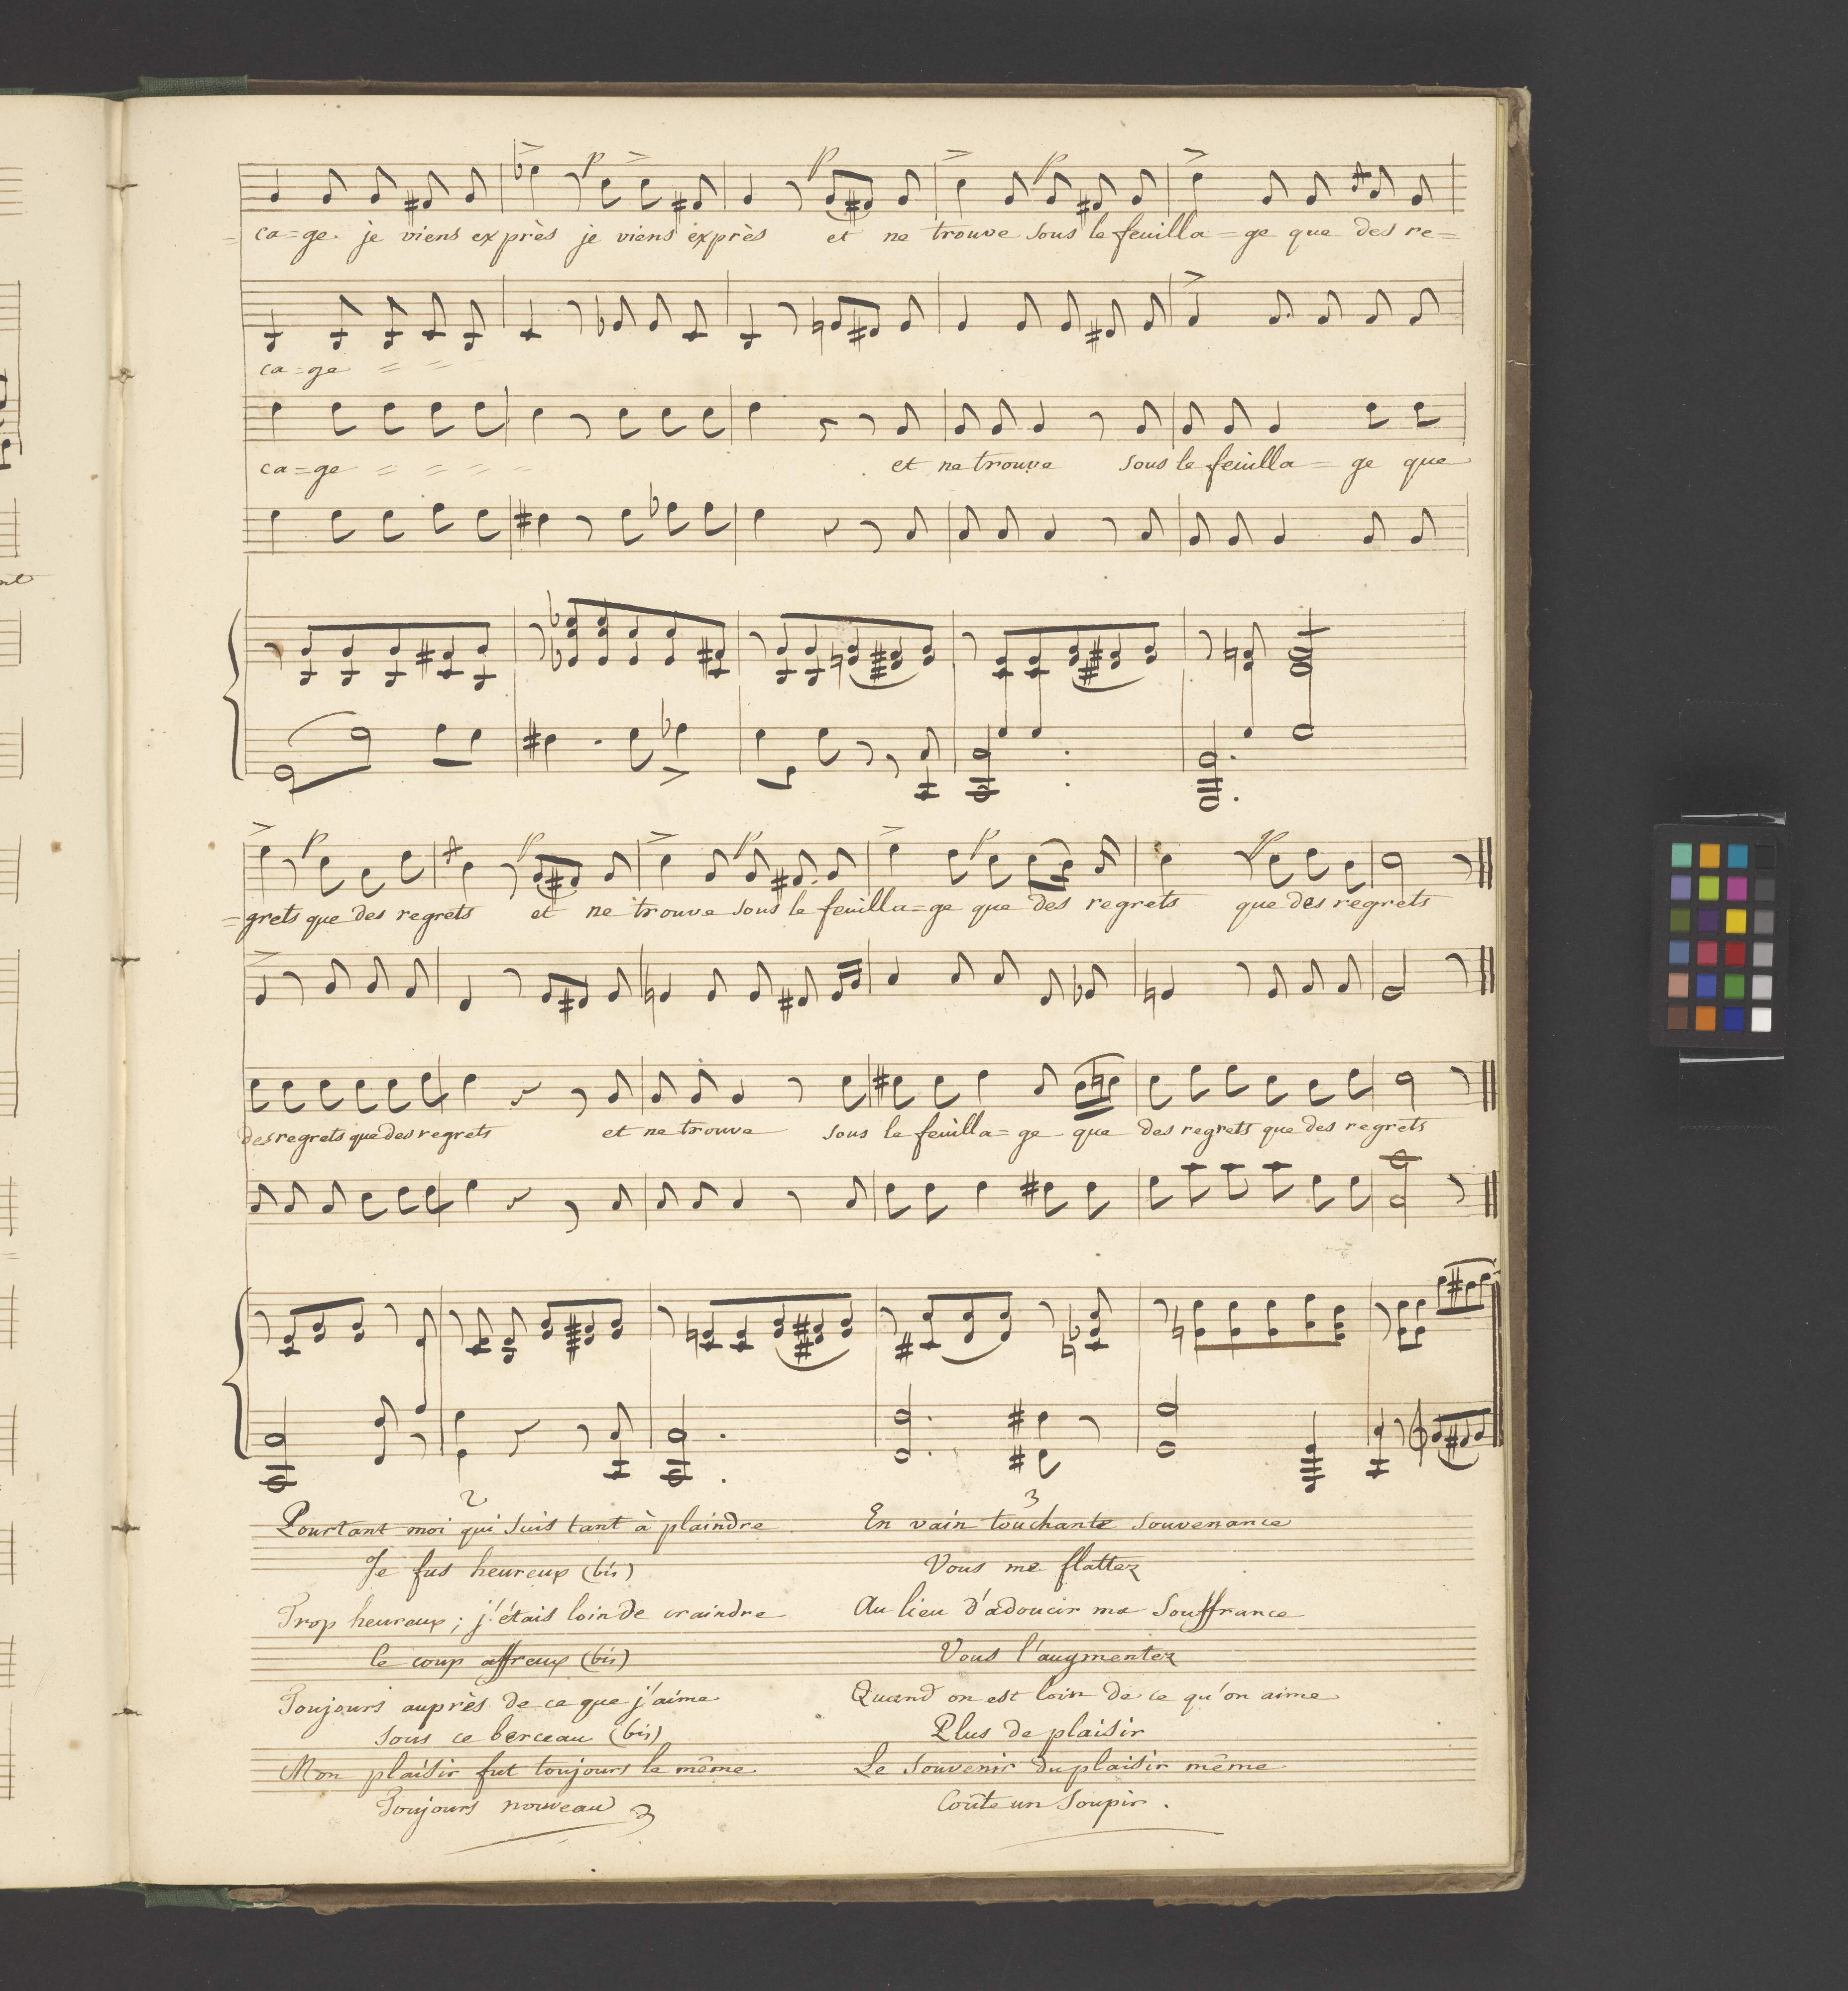 = ca=ge. je viens exprès je viens exprès et ne trouve sous le feuilla=ge que des re=
ca=ge = =
ca=ge = = = = et ne trouve sous le feuilla=ge que
=grets que des regrets et ne trouve sous le feuilla=ge que des regrets que des regrets
des regrets que des regrets et ne trouve sous le feuilla=ge que des regrets que des regrets
2
Pourtant moi qui suis tant à plaindre
Je fus heureux (bis)
Trop heureux; j'étais loin de craindre
Ce coup affreux (bis)
Toujours auprès de ce que j'aime
sous ce berceau (bis)
Mon plaisir fut toujours le même
Toujours nouveau
3
En vain touchante souvenance
Vous me flattez
Au lieu d'adoucir ma souffrance
Vous l'augmentez
Quand on est loin de ce qu'on aime
Plus de plaisir
Le souvenir du plaisir même
Coûte un soupir.